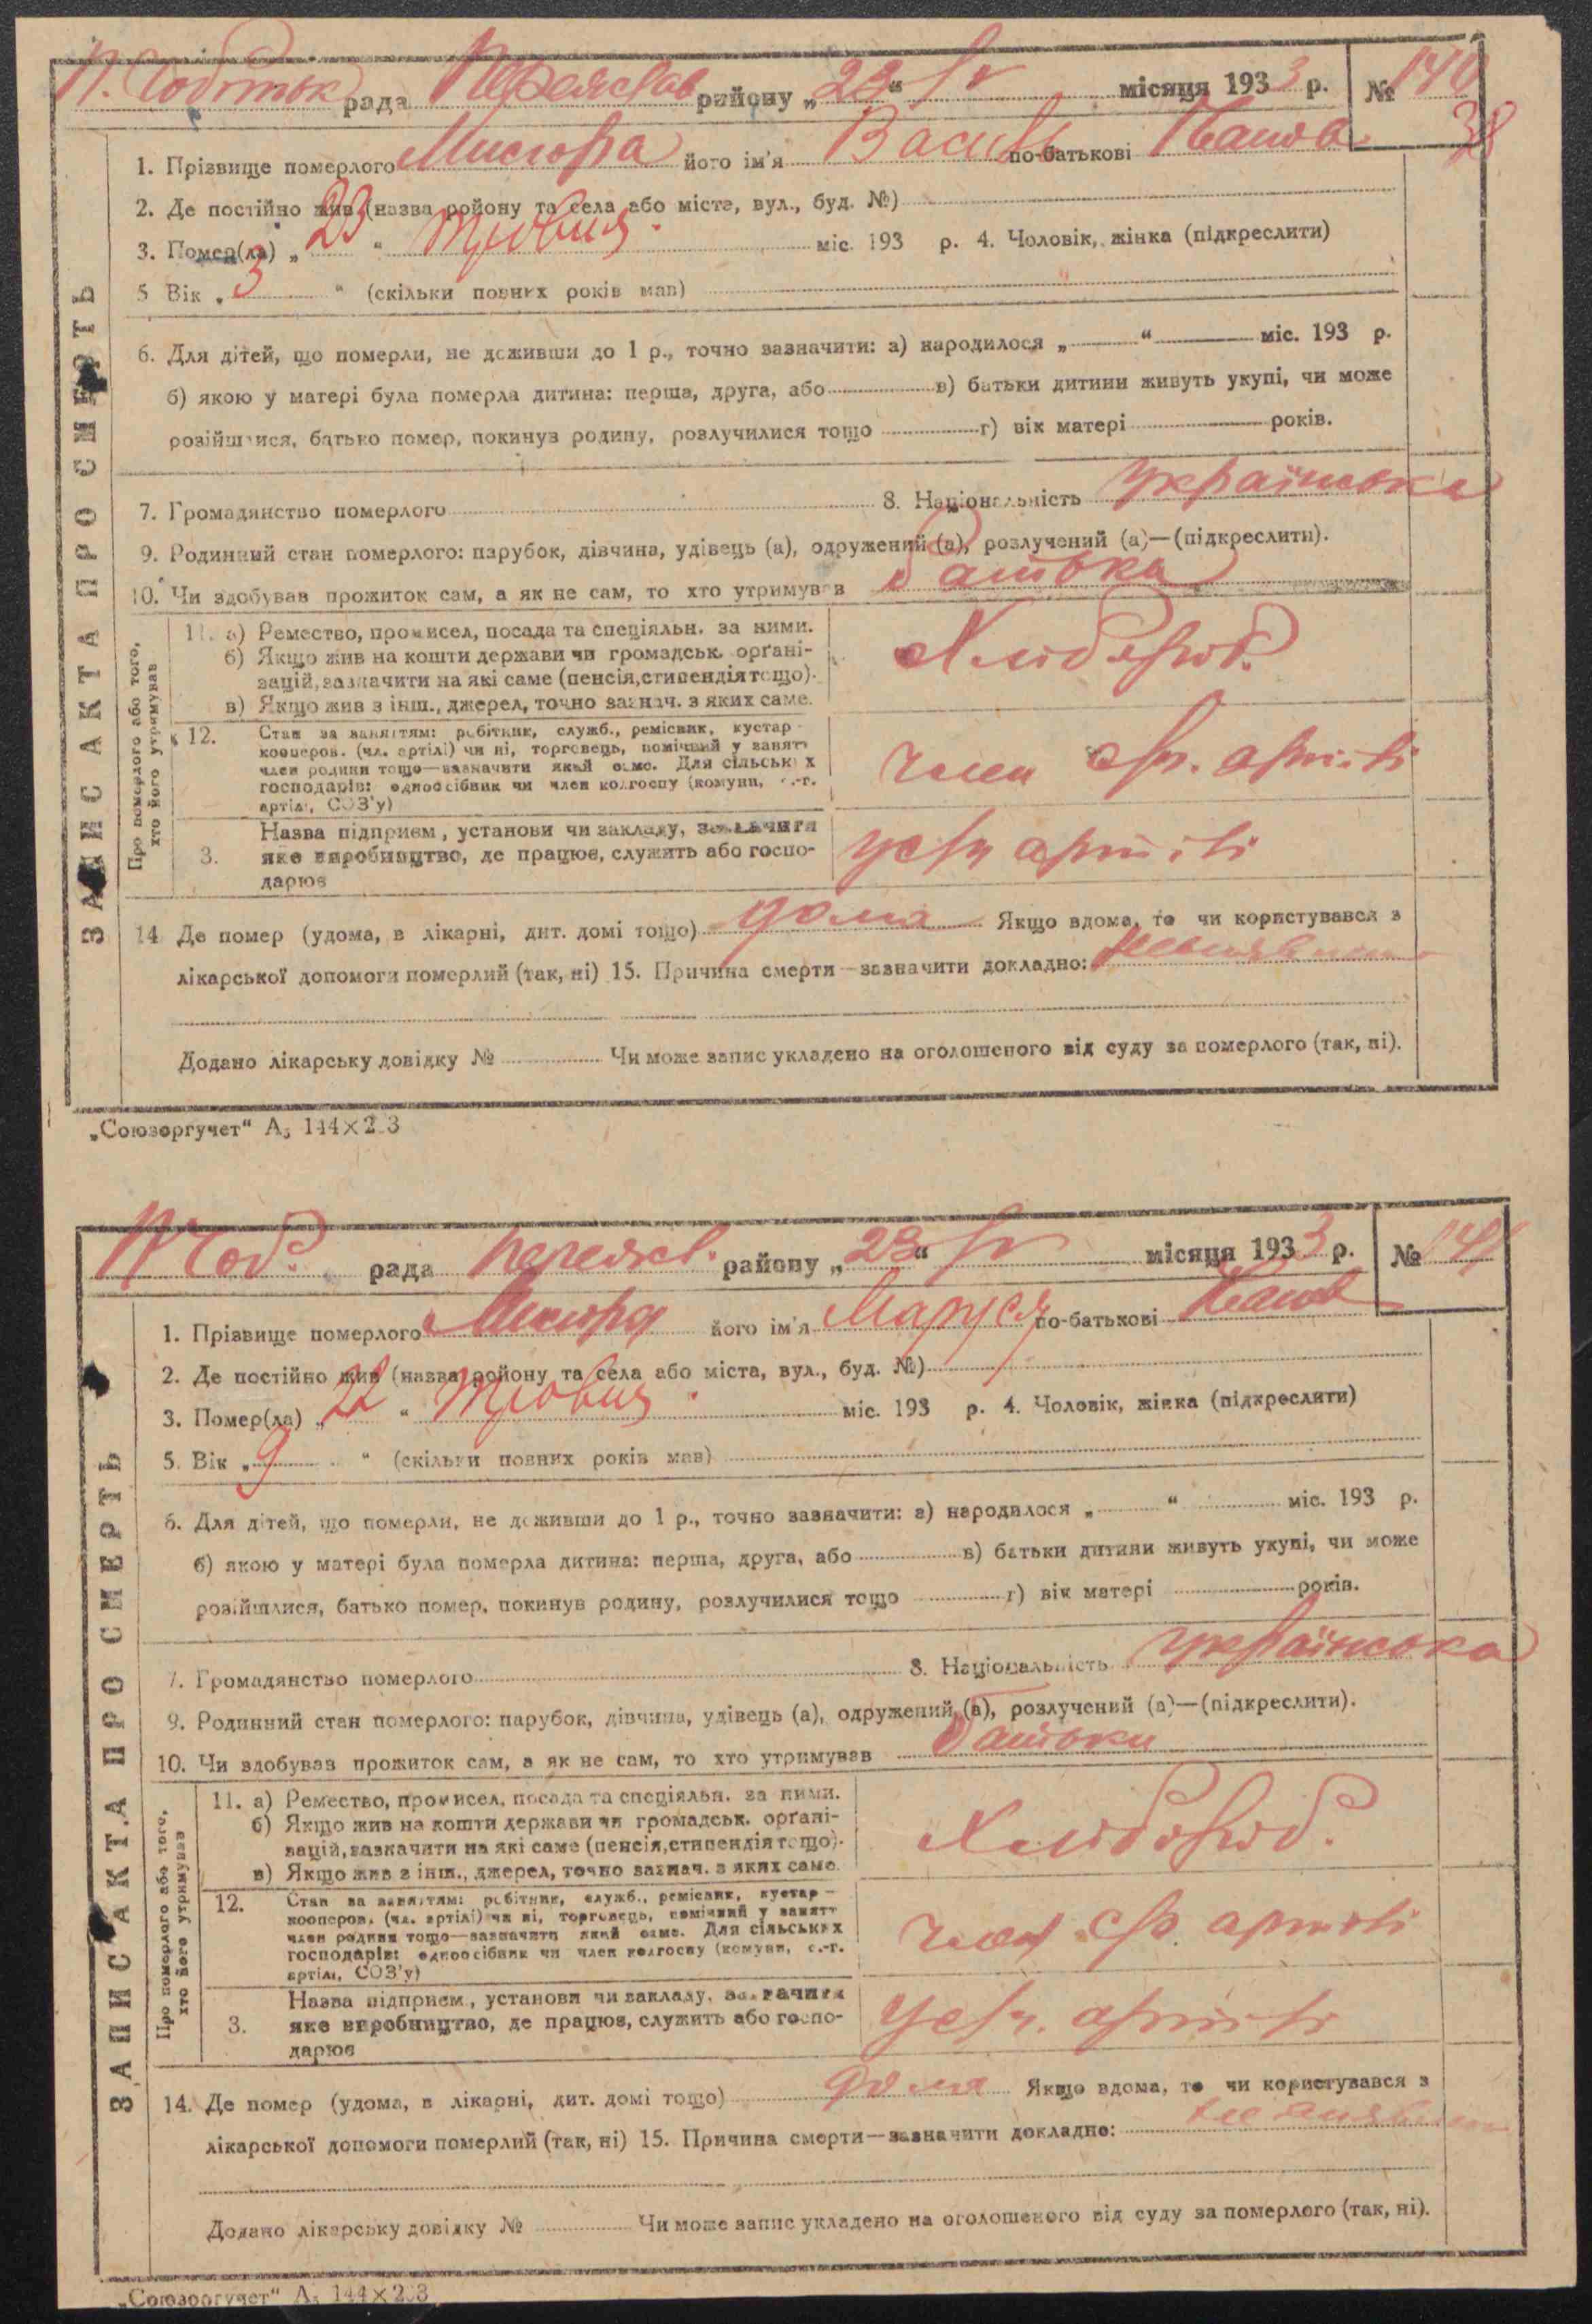 рада Переяслав району „23“ IV місяця 1933 р. № 140
38
1. Прізвище померлого Мисюра його ім'я Василь по-батькові Іванов.
2. Де постійно жив (назва ройону та села або міста, вул., буд. №)
3. Помер(ла) „23“ травня. міс. 193 р. 4. Чоловік, жінка (підкреслити)
5 Вік „3“ (скільки повних років мав)
6. Для дітей, що померли, не доживши до 1 р., точно зазначити: а) народилося „ “ міс. 193 р.
б) якою у матері була померла дитина: перша, друга, або в) батьки дитини живуть укупі, чи може
розійшлися, батько помер, покинув родину, розлучилися тощо г) вік матері років.
7. Громадянство померлого 8. Національність українська
9. Родинний стан померлого: парубок, дівчина, удівець (а), одружений (а), розлучений (а)—(підкреслити).
10. Чи здобував прожиток сам, а як не сам, то хто утримував батька
ЗАПИС АКТА ПРО СМЕРТЬ
Про померлого або того,
хто його утримував
11. а) Ремество, промисел, посада та спеціяльн. за ними.
б) Якщо жив на кошти держави чи громадськ. органі-
зацій, зазначити на які саме (пенсія, стипендія тощо).
в) Якщо жив з інш., джерел, точно зазнач. з яких саме.
Хлібороб.
12. Стан за заняттям: робітник, служб., ремісник, кустар
кооперов. (чл. артілі) чи ні, торговець, помічний у занятт
член родини тощо—зазначити який саме. Для сільських
господарів: одноосібник чи член колгоспу (комуни, с.-г.
артілі, СОЗ'у)
член артілі
3. Назва підприєм, установи чи закладу, зазначити
яке виробництво, де працює, служить або госпо-
дарює
артілі
14 Де помер (удома, в лікарні, дит. домі тощо) дома Якщо вдома, то чи користувався з
лікарської допомоги померлий (так, ні) 15. Причина смерти—зазначити докладно:
Додано лікарську довідку № Чи може запис укладено на оголошеного від суду за померлого (так, ні).
„Союзоргучет“ А₅ 144×203
рада Переясл. району „23“ IV місяця 1933 р. № 141
1. Прізвище померлого Мисюра його ім'я Маруся по-батькові Іванов
2. Де постійно жив (назва ройону та села або міста, вул., буд. №)
3. Помер(ла) „22“ травня. міс. 193 р. 4. Чоловік, жінка (підкреслити)
5. Вік „9“ (скільки повних років мав)
6. Для дітей, що померли, не доживши до 1 р., точно зазначити: а) народилося „ “ міс. 193 р.
б) якою у матері була померла дитина: перша, друга, або в) батьки дитини живуть укупі, чи може
розійшлися, батько помер, покинув родину, розлучилися тощо г) вік матері років.
7. Громадянство померлого 8. Національність українська
9. Родинний стан померлого: парубок, дівчина, удівець (а), одружений (а), розлучений (а)—(підкреслити).
10. Чи здобував прожиток сам, а як не сам, то хто утримував батьки
ЗАПИС АКТА ПРО СМЕРТЬ
Про померлого або того,
хто його утримував
11. а) Ремество, промисел, посада та спеціяльн. за ними.
б) Якщо жив на кошти держави чи громадськ. органі-
зацій, зазначити на які саме (пенсія, стипендія тощо).
в) Якщо жив з інш., джерел, точно зазнач. з яких саме.
Хлібороб.
12. Стан за заняттям: робітник, служб., ремісник, кустар —
кооперов. (чл. артілі) чи ні, торговець, помічний у занятт
член родини тощо—зазначити який саме. Для сільських
господарів: одноосібник чи член колгоспу (комуни, с.-г.
артілі, СОЗ'у)
член артілі
3. Назва підприєм., установи чи закладу, зазначити
яке виробництво, де працює, служить або госпо-
дарює
артілі
14. Де помер (удома, в лікарні, дит. домі тощо) дома Якщо вдома, то чи користувався з
лікарської допомоги померлий (так, ні) 15. Причина смерти—зазначити докладно:
Додано лікарську довідку № Чи може запис укладено на оголошеного від суду за померлого (так, ні).
„Союзоргучет“ А₅ 144×203